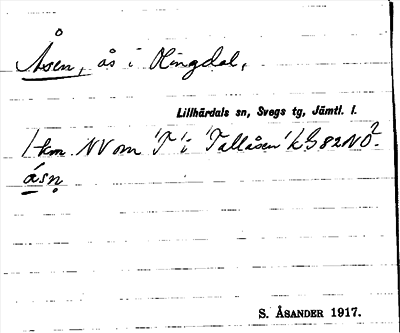 Åsen, ås i Olingdal,
Lillhärdals sn, Svegs tg, Jämtl. l.
1 km NV om 'T' i 'Tallåsen' k G 82 NO².
åsn̥
S. ÅSANDER 1917.